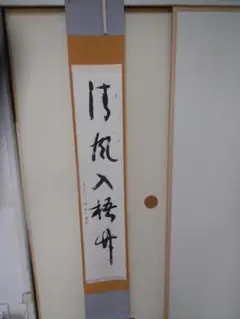 清風入梧竹